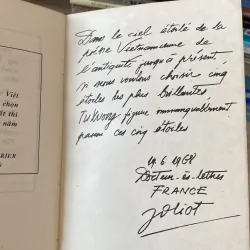 Việt
chọn
ất thi
năm
RRIER
Dans le ciel étoilé de la
poésie Vietnamienne de
l'antiquité jusqu'à présent
si nous voulons choisir cinq
étoiles les plus brillantes
TuWong figure immanquablement
parmi ces cinq étoiles
19.6.1968
Docteur-ès-lettres
FRANCE
Joliot